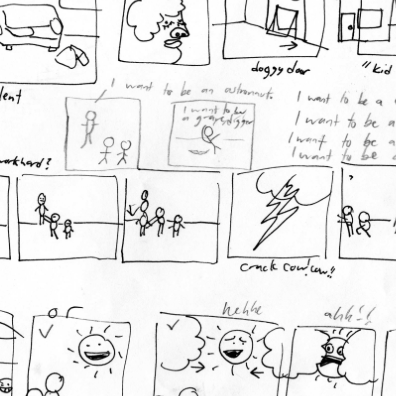 dent
doggy door
"kid
I want to be an astronaut.
I want to be
a gravedigger
I want to be a
I want to be a
I want to be a
I want to be a
work hard?
?
crack
hehhe
ahh!!